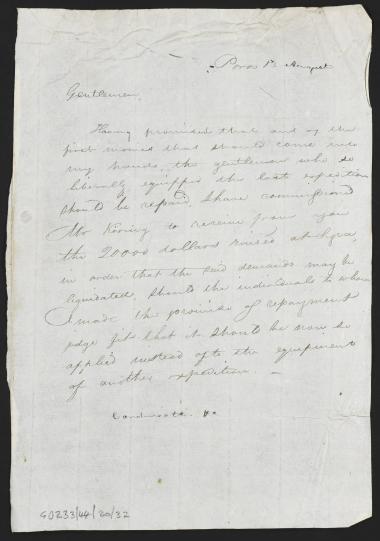 Poros 1st August
Gentlemen,
Having promised that out of the
first monies that should come into
my hands the gentlemen who so
liberally equipped the last expedition
should be repaid I have commissioned
Mr Koering to receive from you
the 20000 dollars raised at Syra,
in order that the said demands may be
liquidated. Should the individuals to whom
I made the promise of repayment
judge fit that it should be now so
applied instead of to the equipment
of another expedition. —
GD233/44/20/32